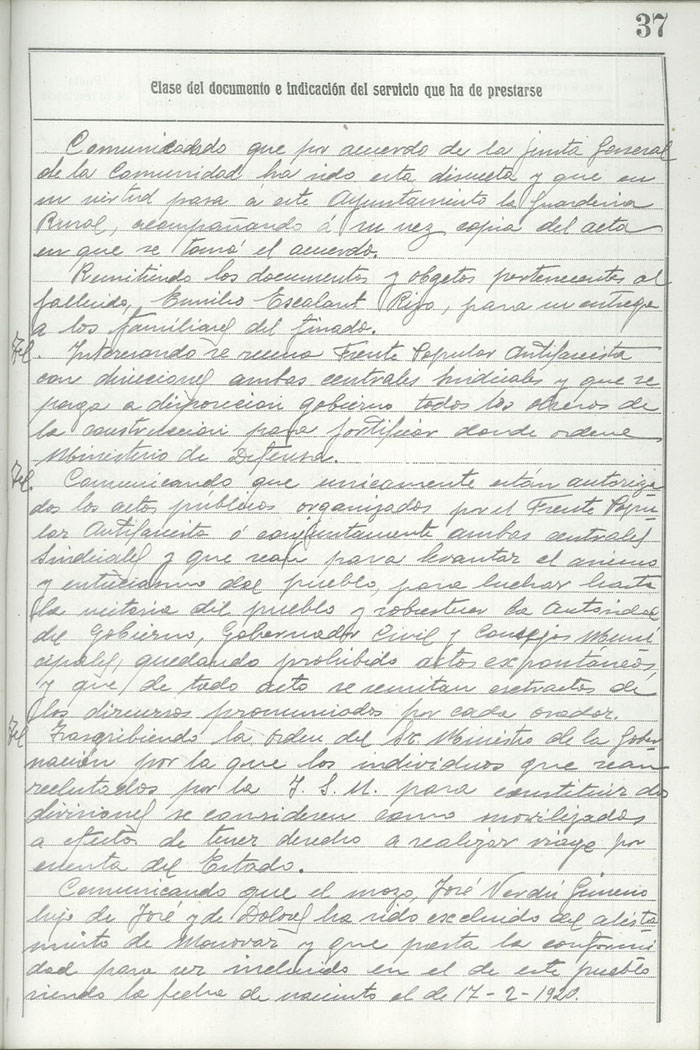 37
Clase del documento e indicación del servicio que ha de prestarse
Comunicadado que por acuerdo de la junta General
de la Comunidad ha sido esta disuelta y que en
su virtud pasa á este Ayuntamiento la Guarderia
Rural, acompañando á su vez copia del acta
en que se tomó el acuerdo.
Remitiendo los documentos y obgetos pertenecientes al
fallecido, Emilio Escalant Rizo, para su entrega
a los familiares del finado.
Tel. Interesando se reuna Frente Popular Antifascista
con direciones ambas centrales sindicales y que se
ponga a disposicion gobierno todos los obreros de
la construcion para fortificar donde ordene
Ministerio de Defensa.
Tel. Comunicando que unicamente están autoriza
dos los actos públicos organizados por el Frente Popu
lar Antifascista ó conjuntamente ambas centrales
Sindicales y que sean para levantar el animo
y entusiasmo del pueblo, para luchar hasta
la victoria del pueblo y robustecer la Autoridad
del Gobierno, Gobernador Civil y Consejos Muni
cipales, quedando prohibido actos expontáneos,
y que de todo acto se remitan extractos de
los discursos pronunciados por cada orador.
Tel Trasgribiendo la orden del Sr. Ministro de la Gober
nación por la que los individuos que sean
reclutados por la J. S. U. para constituir dos
divisiones se consideren como movilizados
a efecto de tener derecho a realizar viaje por
cuenta del Estado.
Comunicando que el mozo, José Verdú Gimeno
hijo de José y de Dolores ha sido excluido del alista
miento de Monovar y que presta la conformi
dad para ser incluido en el de este pueblo
siendo la fecha de nacimto el de 17-2-1920.